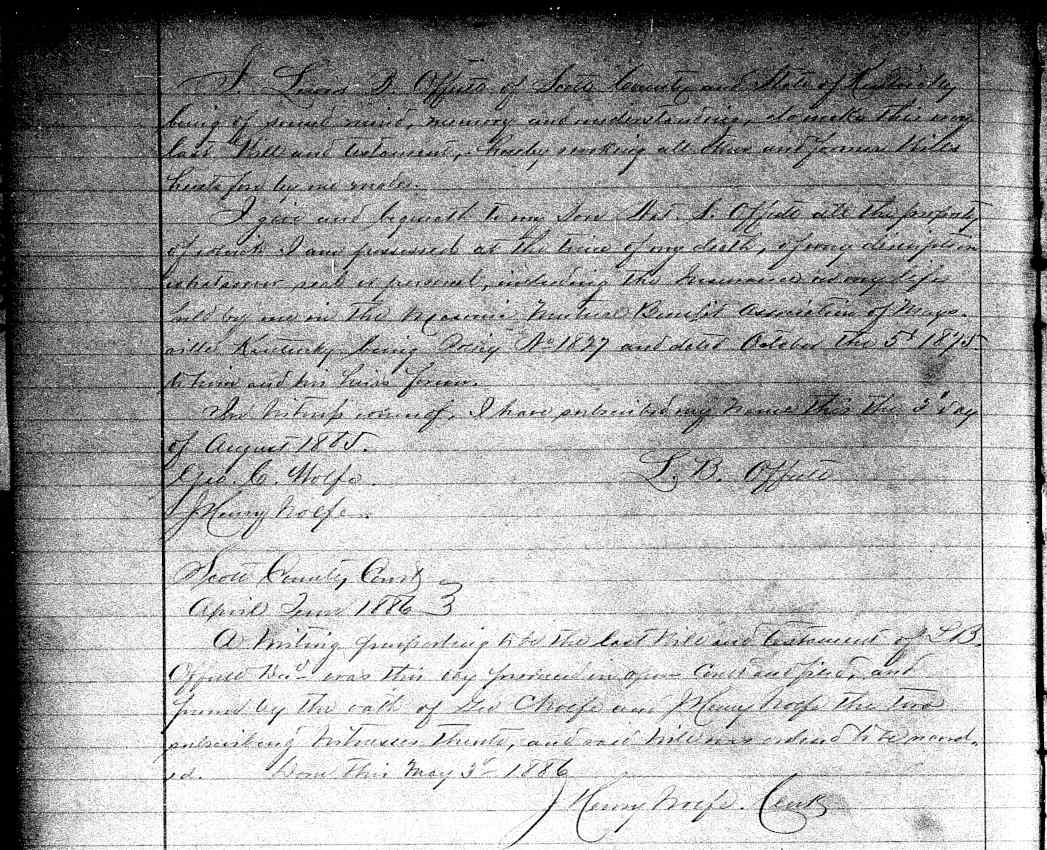 I. Lewis B. Offutt of Scott County and State of Kentucky
being of sound mind, memory and understanding, do make this my
last Will and testament, hereby revoking all other and former Wills
heretofore by me made.
I give and bequeath to my Son S. Offutt all the property
of which I am possessed at the time of my death, of any description
whatsoever real or personal, including the Insurance on my life
held by me in the Masonic Mutual Benefit Association of Mays-
ville Kentucky being Policy No 1827 and dated October the 5th 1875
to him and his heirs forever.
In witness whereof, I have subscribed my name this the 3d day
of August 1885.
Geo. C. Wolfe. L. B. Offutt
J Henry Wolfe
Scott County Court
April Term 1886
A Writing purporting to be the last Will and testament of L B.
Offutt Decd was this day produced in open Court and filed, and
proved by the oath of Geo C Wolfe and J Henry Wolfe the two
subscribing witnesses thereto, and said Will was ordered to be record-
ed. Done this May 3d 1886
J Henry Wolfe. Clerk